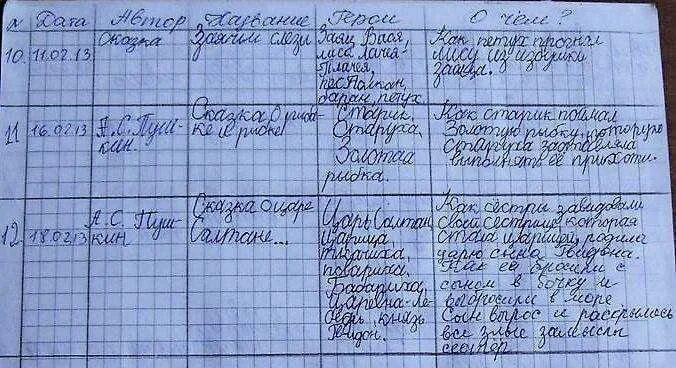 № Дата Автор Название Герои О чём?
10. 11.02.13 Сказка Заячьи слёзы Заяц Вася, Как петух прогнял
лиса Лачея- лису из избушки
Плачея, зайца.
пёс Полкан,
баран, петух
11 16.02.13 А.С. Пуш- Сказка о рыба- Старик, Как старик поймал
кин. ке и рыбке Старуха, Золотую рыбку, которую
Золотая старуха заставляла
рыбка. выполнять её прихоти.
12. 18.02.13 А.С. Пуш- Сказка о царе Царь Салтан, Как сёстры завидовали
кин Салтане... Царица своей сестрице, которая
ткачиха, стала царицей, родила
повариха, царю сына Гвидона.
Бабариха, Как её бросили с
Царевна-Ле- сыном в бочку и
бедь, князь выбросили в море.
Гвидон. Сын вырос и раскрылось
все злые замыслы
сестёр